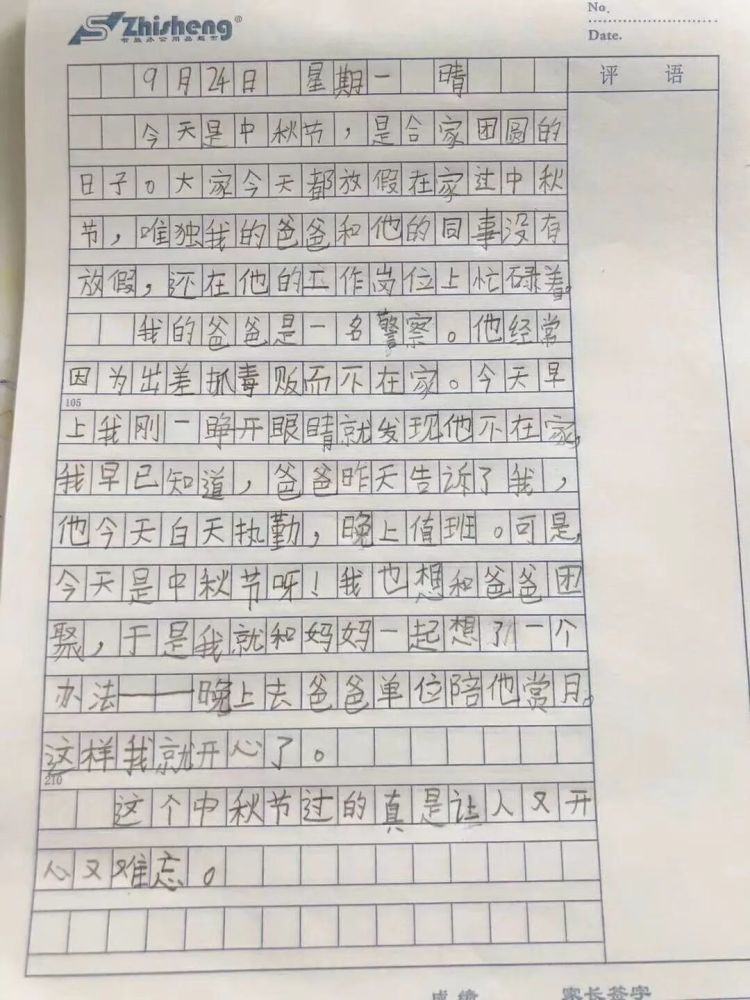 Zhisheng®
No.
Date.
评 语
9月24日 星期一 晴
今天是中秋节，是合家团圆的
日子。大家今天都放假在家过中秋
节，唯独我的爸爸和他的同事没有
放假，还在他的工作岗位上忙碌着。
我的爸爸是一名警察。他经常
因为出差抓毒贩而不在家。今天早
105
上我刚一睁开眼睛就发现他不在家，
我早已知道，爸爸昨天告诉了我，
他今天白天执勤，晚上值班。可是，
今天是中秋节呀！我也想和爸爸团
聚，于是我就和妈妈一起想了一个
办法——晚上去爸爸单位陪他赏月。
这样我就开心了。
210
这个中秋节过的真是让人又开
心又难忘。
成绩 家长签字